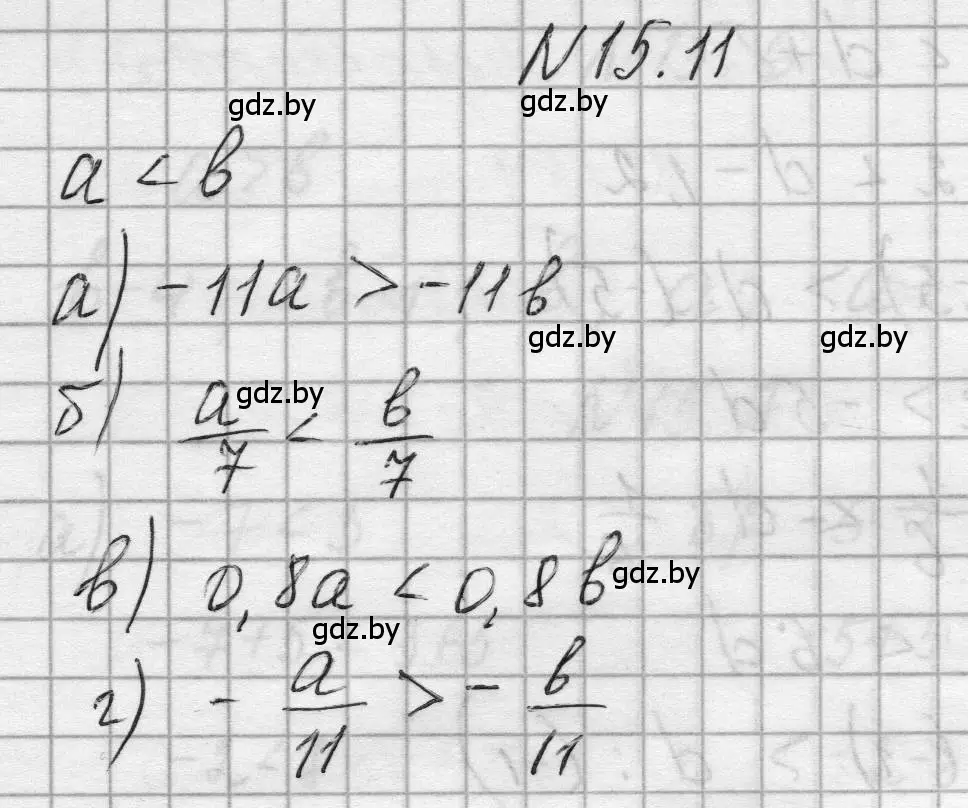 N 15.11
gdz.by gdz.by
a < b
а) -11a > -11b
gdz.by gdz.by
gdz.by
б) a/7 < b/7
в) 0,8a < 0,8b
gdz.by
gdz.by
г) - a/11 > - b/11